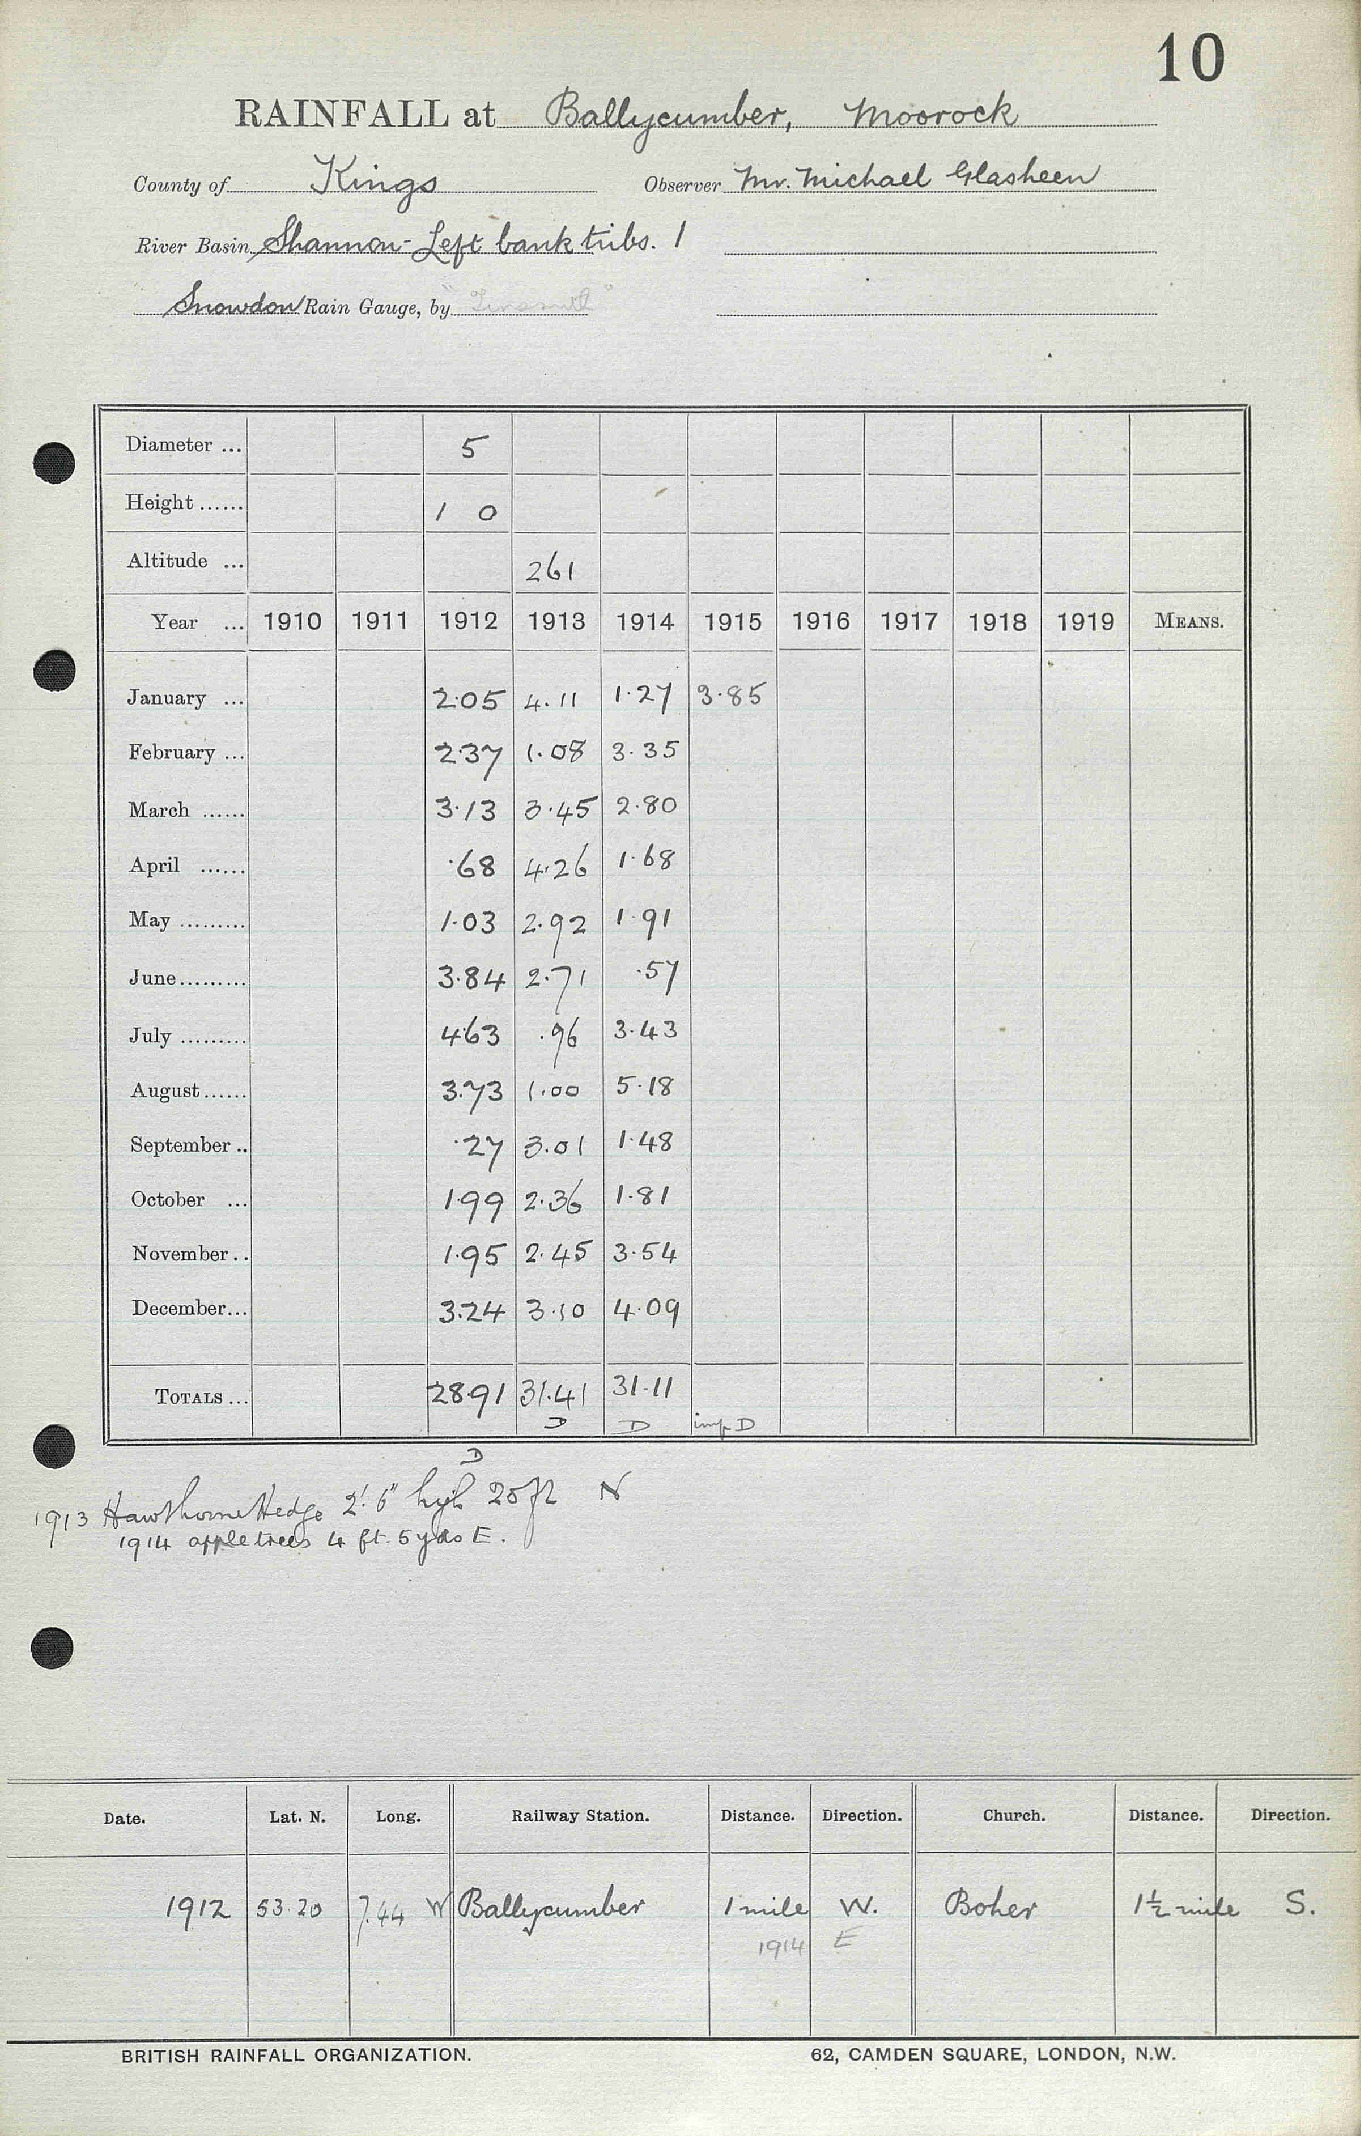 10
RAINFALL at Ballycumber, Moorock
County of Kings Observer Mr. Michael Glasheen
River Basin Shannon - Left bank tribs. 1
Snowdon Rain Gauge, by
Diameter ... 5
Height ...... 1 0
Altitude ... 261
Year ... 1910 1911 1912 1913 1914 1915 1916 1917 1918 1919 MEANS.
January ... 2.05 4.11 1.27 3.85
February ... 2.37 1.08 3.35
March ...... 3.13 3.45 2.80
April ...... .68 4.26 1.68
May ......... 1.03 2.92 1.91
June......... 3.84 2.71 .57
July ......... 4.63 .96 3.43
August...... 3.73 1.00 5.18
September .. .27 3.01 1.48
October ... 1.99 2.36 1.81
November.. 1.95 2.45 3.54
December... 3.24 3.10 4.09
TOTALS ... 28.91 31.41 31.11
D D imp D
D
1913 Hawthorne Hedge 2' 6" high 25 ft N
1914 apple trees 4 ft. 5 yds E.
Date. Lat. N. Long. Railway Station. Distance. Direction. Church. Distance. Direction.
1912 53.20 7.44 W Ballycumber 1 mile W. Boher 1½ mile S.
1914 E
BRITISH RAINFALL ORGANIZATION. 62, CAMDEN SQUARE, LONDON, N.W.